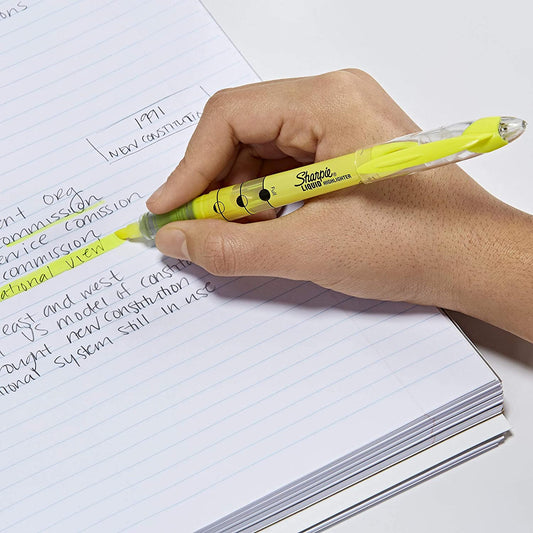 ons
1991
New constitution
ent org
commission
ervice comission
commission
ational view
east and west
US model of constitu
ought new constitution
tional system still in use
Sharpie
LIQUID HIGHLIGHTER
Full